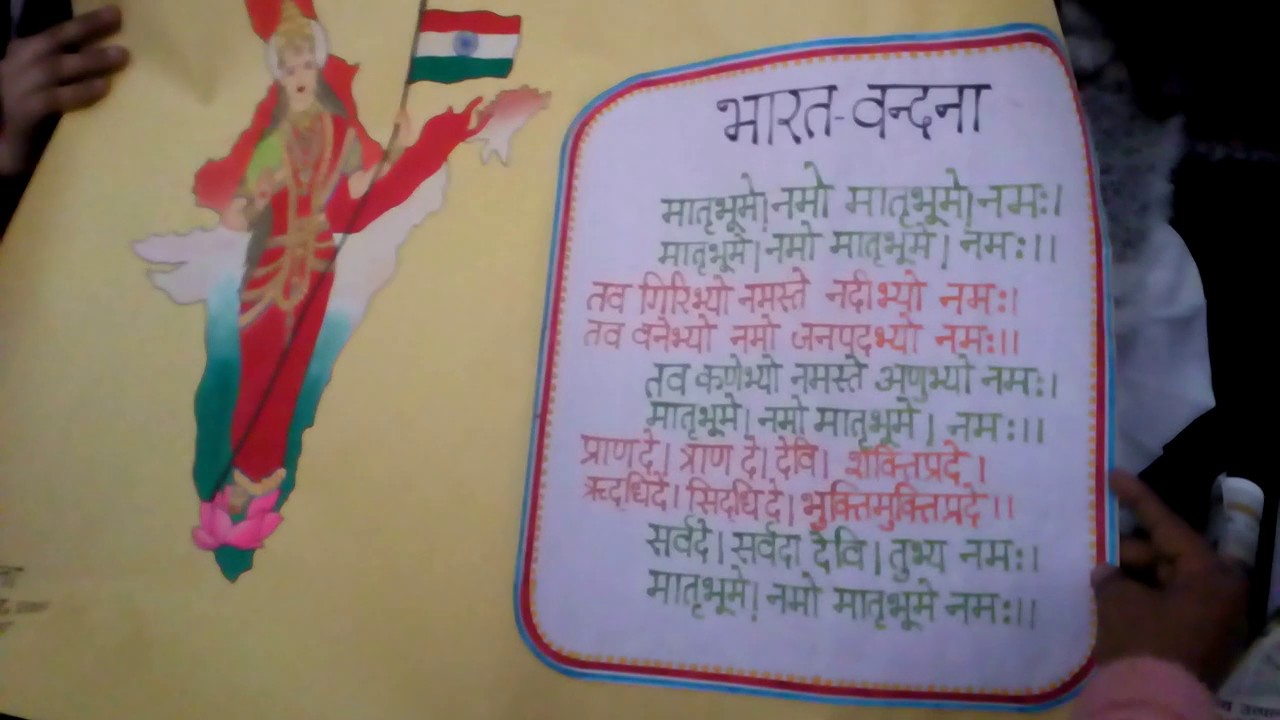 भारत-वन्दना
मातृभूमे! नमो मातृभूमे! नमः।
मातृभूमे! नमो मातृभूमे! नमः।।
तव गिरिभ्यो नमस्ते नदीभ्यो नमः।
तव वनेभ्यो नमो जनपदभ्यो नमः।।
तव कणेभ्यो नमस्ते अणुभ्यो नमः।
मातृभूमे! नमो मातृभूमे! नमः।।
प्राण दे। त्राण दे। देवि। शक्तिप्रदे।
ऋद्धिदे। सिद्धि दे। भुक्तिमुक्तिप्रदे।।
सर्वदे। सर्वदा देवि। तुभ्य नमः।
मातृभूमे! नमो मातृभूमे नमः।।